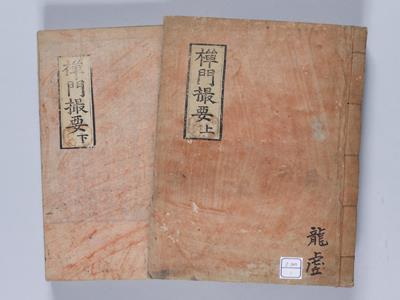 禪門撮要上
龍虛
禪門撮要下